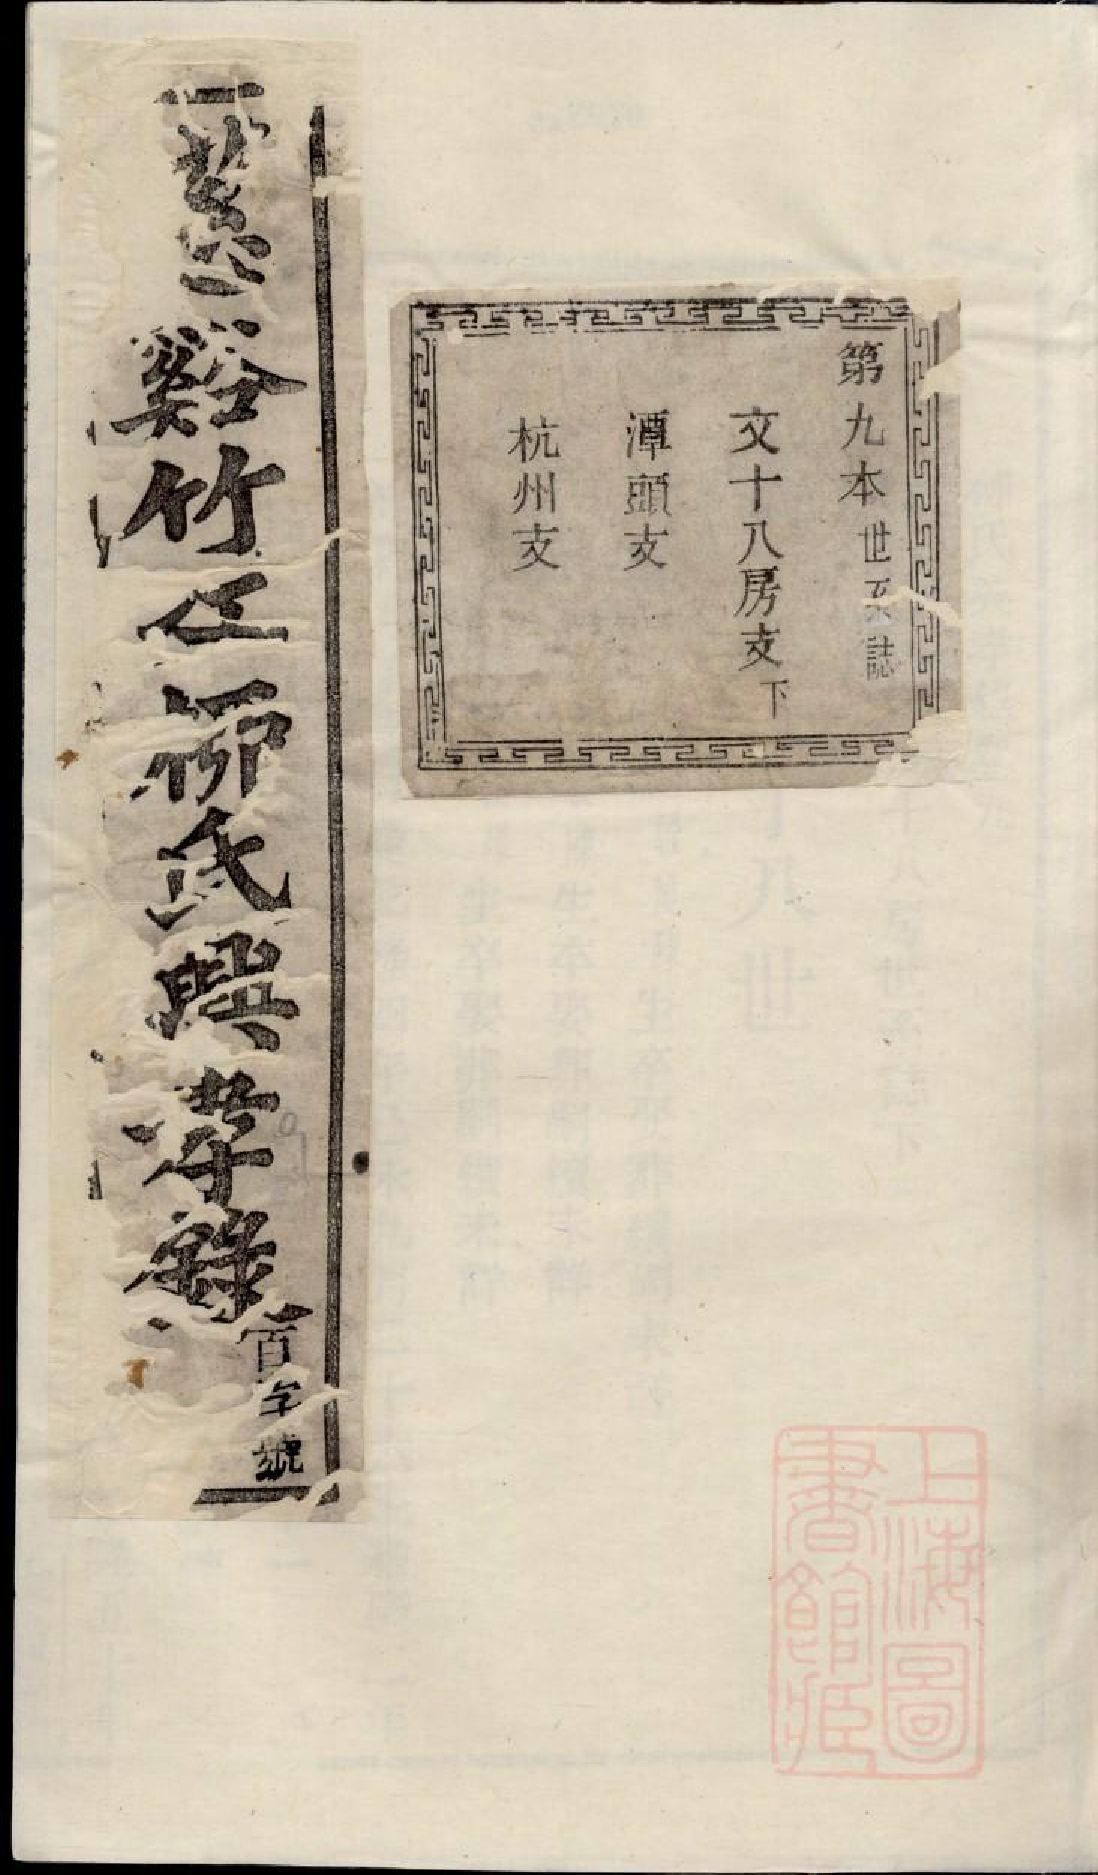 第九本世系誌
文十八房支下
潭頭支
杭州支
慈谿竹江柳氏興孝錄百字號
上海圖
書館藏